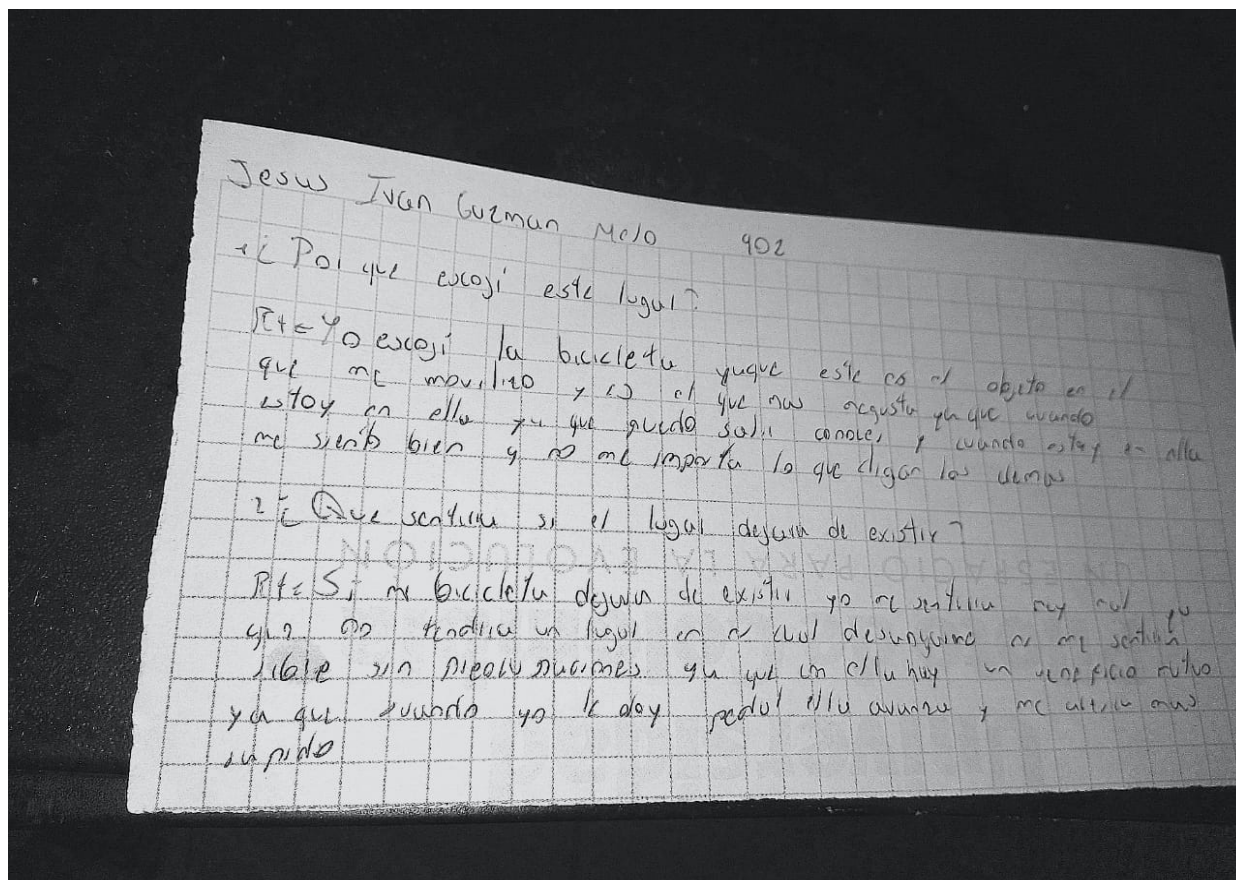 Jesus Ivan Guzman Melo 902
¿Por que escoji este lugar?
Rt= Yo escoji la bicicleta yaque este es el objeto en el
que me movilizo y es el que mas ya que cuando
estoy en ella ya que puedo salir conocer y cuando estoy en ella
me siento bien y no me importa lo que digan los demas
2 ¿Que sentiria si el lugar dejara de existir?
UN ESPACIO PARA LA EVOLUCION
Rt= Si mi bicicleta dejara de existir yo me sentiria muy mal ya
que no tendria un lugar en el cual no me sentiria
libre sin ya que en ella hay un veneficio mutuo
ya que cuando yo le doy pedal ella avanza y me mas
rapido